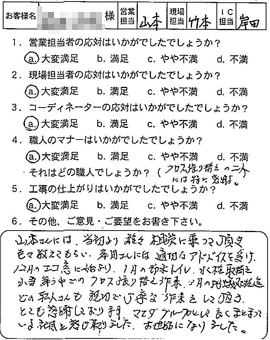 お客様名 様 営業担当 山本 現場担当 竹本 IC担当 岸田
1．営業担当者の応対はいかがでしたでしょうか？
a.大変満足 b.満足 c.やや不満 d.不満
2．現場担当者の応対はいかがでしたでしょうか？
a.大変満足 b.満足 c.やや不満 d.不満
3．コーディネーターの応対はいかがでしたでしょうか？
a.大変満足 b.満足 c.やや不満 d.不満
4．職人のマナーはいかがでしたでしょうか？
a.大変満足 b.満足 c.やや不満 d.不満
それはどの職人でしょうか？（クロス張り替えの
には特に感謝。
5．工事の仕上がりはいかがでしたでしょうか？
a.大変満足 b.満足 c.やや不満 d.不満
6．その他、ご意見・ご要望をお書き下さい。
山本さんには、当初より 相談に乗って頂き
適切なアドバイスを頂き、
12月のエコ 1月の トイレ、
クロス張り替え
どの職人さんも親切で丁寧な作業をして頂き、
とても感謝しております。 マエダグループとして良くまとまって
いる と感じました。お世話になりました。